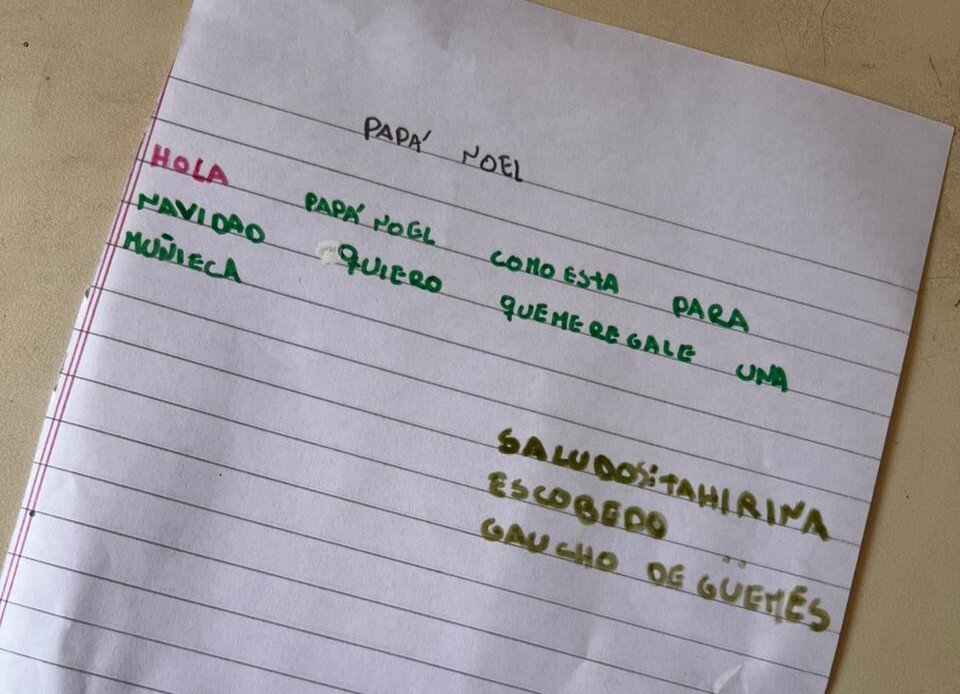 PAPÁ NOEL
HOLA PAPÁ NOEL COMO ESTA PARA
NAVIDAD QUIERO QUEMEREGALE UNA
MUÑIECA
SALUDOS: TAHIRINA
ESCOBEDO
GAUCHO DE GÜEMES